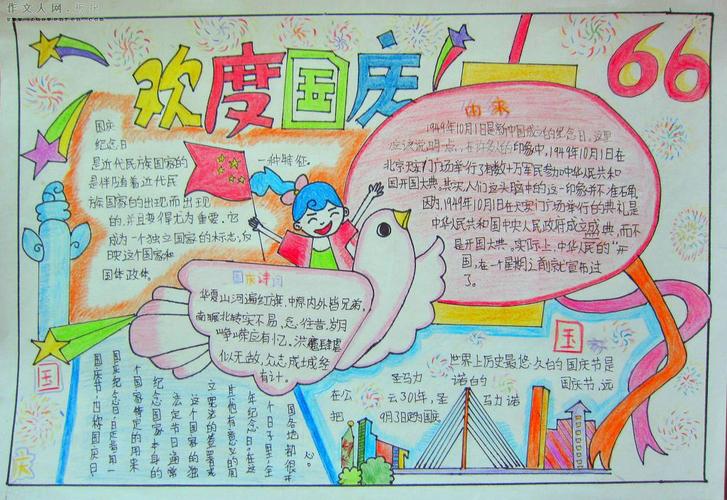 作文人网
欢度国庆
66
国庆
纪念日
一种特征,
是近代民族国家的
是伴随着近代民
族国家的出现而出现
的,并且变得尤为重要。它
成为一个独立国家的标志,反
映这个国家和
国体政体
由来
1949年10月1日是新中国成立的纪念日。这里
应该说明一点,在许多人的印象中,1949年10月1日在
北京天安门广场举行了有数十万军民参加中华人民共和
国开国大典。其实,人们头脑中的这一印象并不准确。
因为,1949年10月1日在天安门广场举行的典礼是
中华人民共和国中央人民政府成立盛典,而不
是开国大典。实际上,中华人民的"开
国,在一个星期之前就宣布过
了。
国庆诗词
华夏山河遍红旗,中原内外皆兄弟。
南暖北转实不易,忘住昔,岁月
峥嵘应有忆。洪魔肆虐
似无敌,众志成城终
有计。
国
庆
国庆节,也称国庆日、
国庆纪念日,是指由一
个国家制定的用来
纪念国家本身的
法定节日 通常
这个国家的独
立宪法的签署或
其他有意义的周
年纪念日,在这
个日子里,全
国各地都很开
心。
国家
世界上历史最悠久的国庆节是
圣马力诺的国庆节,远
在公元301年,圣马力诺
把9月3日定为国庆